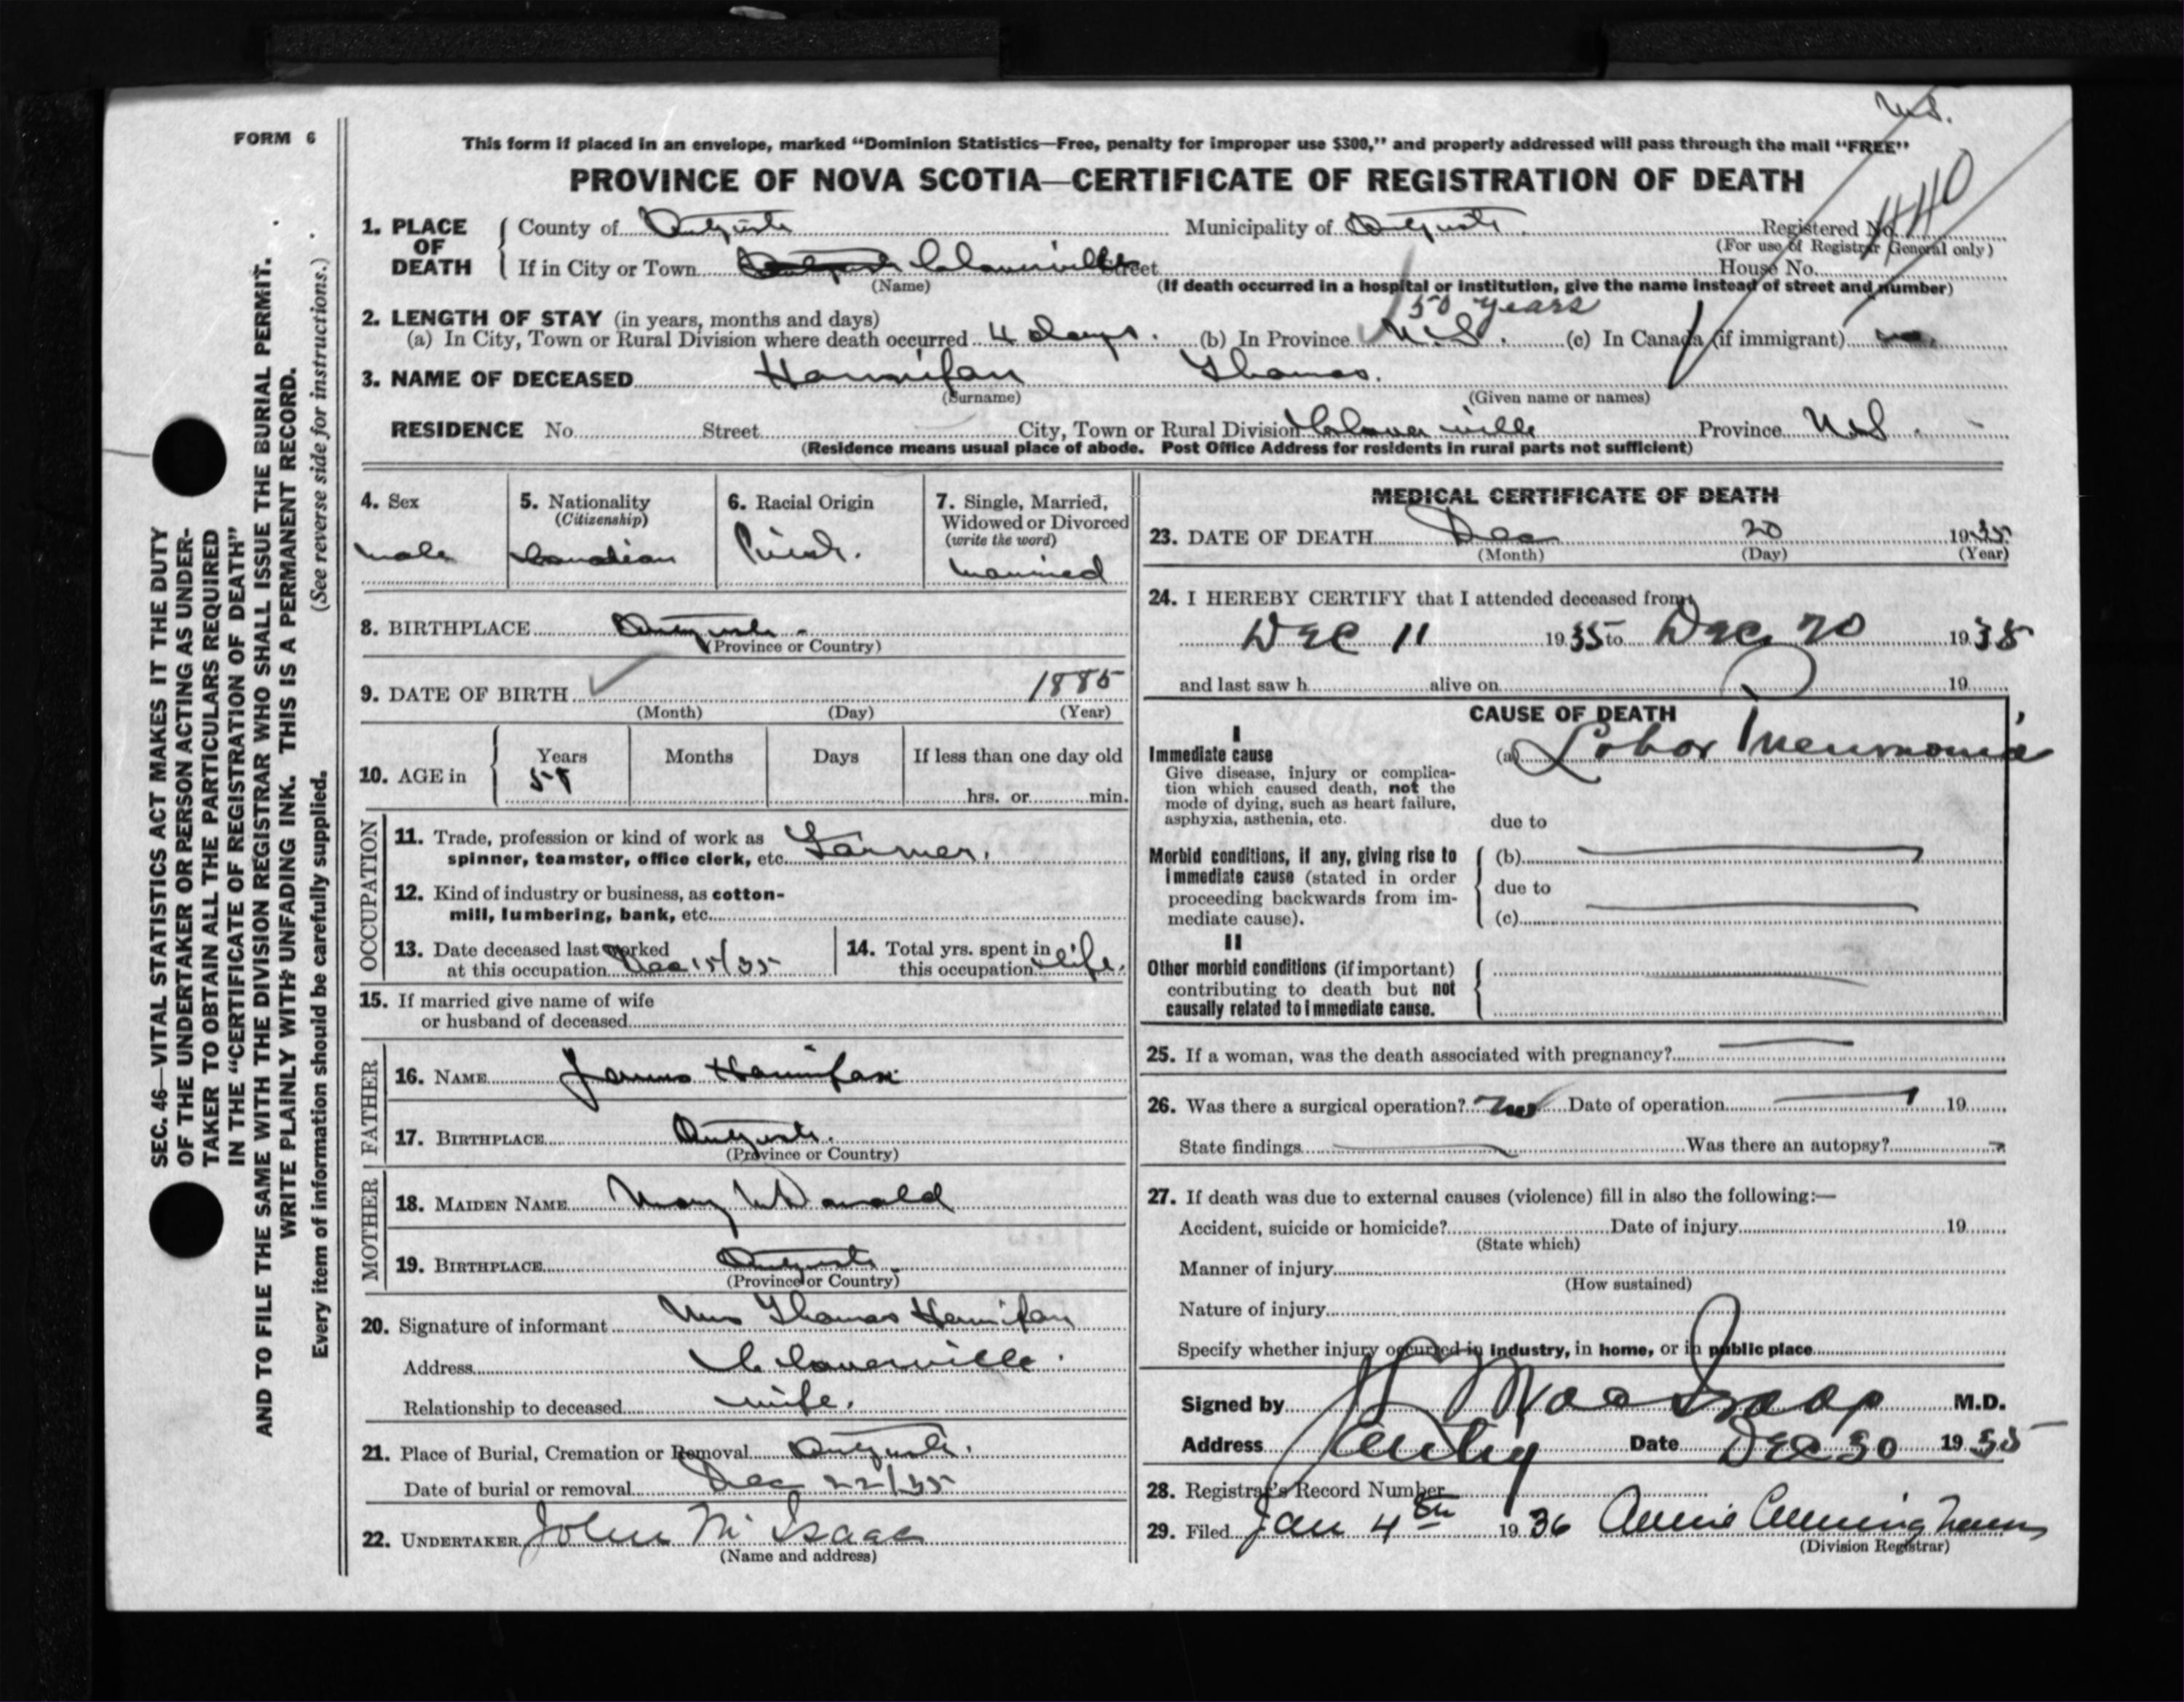 N.S.
FORM 6
This form if placed in an envelope, marked "Dominion Statistics—Free, penalty for improper use $300," and properly addressed will pass through the mail "FREE"
PROVINCE OF NOVA SCOTIA—CERTIFICATE OF REGISTRATION OF DEATH
1. PLACE OF DEATH
County of Antigonish Municipality of Antigonish. Registered No.
(For use of Registrar General only)
If in City or Town Cloverville Street House No.
(Name) (If death occurred in a hospital or institution, give the name instead of street and number)
50 years
2. LENGTH OF STAY (in years, months and days)
(a) In City, Town or Rural Division where death occurred 4 days. (b) In Province N.S. (c) In Canada (if immigrant)
3. NAME OF DECEASED Hannifan Thomas.
(Surname) (Given name or names)
RESIDENCE No. Street City, Town or Rural Division Cloverville Province N.S.
(Residence means usual place of abode. Post Office Address for residents in rural parts not sufficient)
4. Sex
male
5. Nationality
(Citizenship)
Canadian
6. Racial Origin
Irish.
7. Single, Married,
Widowed or Divorced
(write the word)
married
8. BIRTHPLACE Antigonish
(Province or Country)
9. DATE OF BIRTH 1885
(Month) (Day) (Year)
10. AGE in
Years Months Days If less than one day old
hrs. or min.
OCCUPATION
11. Trade, profession or kind of work as
spinner, teamster, office clerk, etc. Farmer.
12. Kind of industry or business, as cotton-
mill, lumbering, bank, etc.
13. Date deceased last worked
at this occupation Dec 15/35
14. Total yrs. spent in
this occupation life.
15. If married give name of wife
or husband of deceased
FATHER
16. NAME James Hannifan
17. BIRTHPLACE Antigonish.
(Province or Country)
MOTHER
18. MAIDEN NAME Mary McDonald
19. BIRTHPLACE Antigonish.
(Province or Country)
20. Signature of informant Mrs Thomas Hannifan
Address Cloverville.
Relationship to deceased wife.
21. Place of Burial, Cremation or Removal Antigonish.
Date of burial or removal Dec 22/35
22. UNDERTAKER John McIsaac
(Name and address)
MEDICAL CERTIFICATE OF DEATH
23. DATE OF DEATH Dec 20 1935.
(Month) (Day) (Year)
24. I HEREBY CERTIFY that I attended deceased from
Dec 11 1935 to Dec 20 1935
and last saw h alive on 19
CAUSE OF DEATH
I
Immediate cause
Give disease, injury or complica-
tion which caused death, not the
mode of dying, such as heart failure,
asphyxia, asthenia, etc.
(a) Lobar Pneumonia
due to
Morbid conditions, if any, giving rise to
immediate cause (stated in order
proceeding backwards from im-
mediate cause).
(b)
due to
(c)
II
Other morbid conditions (if important)
contributing to death but not
causally related to immediate cause.
25. If a woman, was the death associated with pregnancy?
26. Was there a surgical operation? no Date of operation 19
State findings Was there an autopsy?
27. If death was due to external causes (violence) fill in also the following:—
Accident, suicide or homicide? Date of injury 19
(State which)
Manner of injury
(How sustained)
Nature of injury
Specify whether injury occurred in industry, in home, or in public place
Signed by M.D.
Address Antig Date Dec 30 1935
28. Registrar's Record Number
29. Filed Jan 4th 1936 Annie Cunningham
(Division Registrar)
SEC. 46—VITAL STATISTICS ACT MAKES IT THE DUTY
OF THE UNDERTAKER OR PERSON ACTING AS UNDER-
TAKER TO OBTAIN ALL THE PARTICULARS REQUIRED
IN THE "CERTIFICATE OF REGISTRATION OF DEATH"
AND TO FILE THE SAME WITH THE DIVISION REGISTRAR WHO SHALL ISSUE THE BURIAL PERMIT.
WRITE PLAINLY WITH UNFADING INK. THIS IS A PERMANENT RECORD.
Every item of information should be carefully supplied. (See reverse side for instructions.)